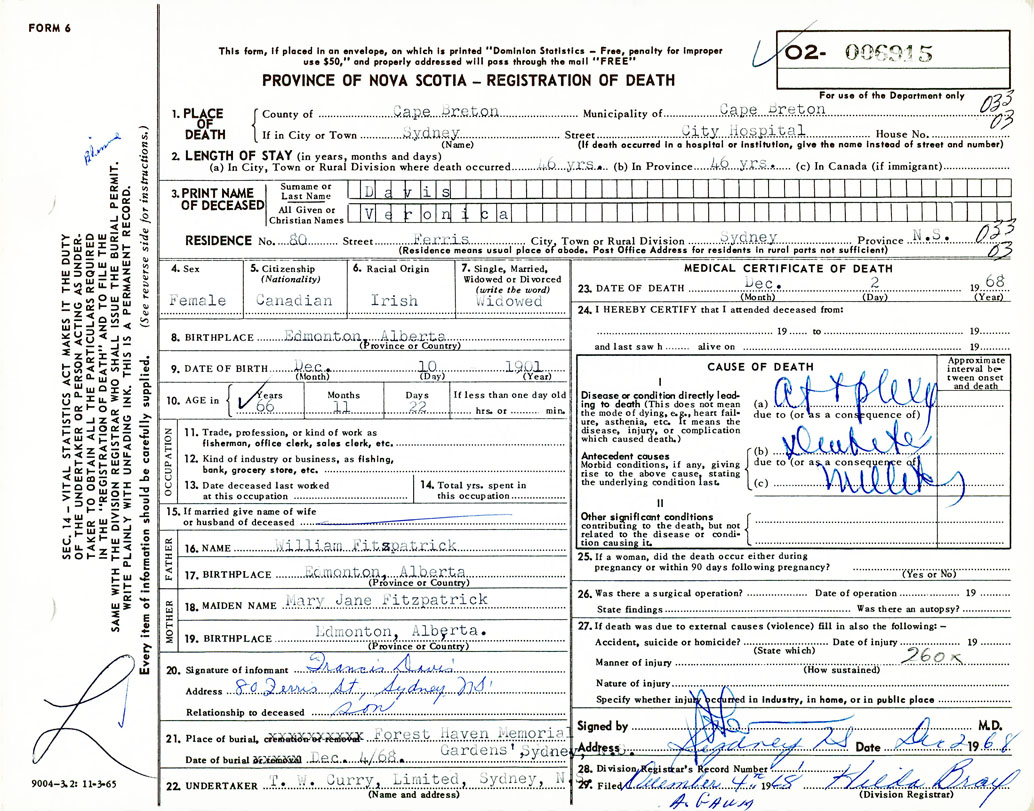 FORM 6
This form, if placed in an envelope, on which is printed "Dominion Statistics – Free, penalty for improper
use $50," and properly addressed will pass through the mail "FREE"
O2- 006915
PROVINCE OF NOVA SCOTIA – REGISTRATION OF DEATH
For use of the Department only
033
03
1. PLACE OF DEATH
County of Cape Breton Municipality of Cape Breton
If in City or Town Sydney Street City Hospital House No.
(Name) (If death occurred in a hospital or institution, give the name instead of street and number)
2. LENGTH OF STAY (in years, months and days)
(a) In City, Town or Rural Division where death occurred 46 yrs. (b) In Province 46 yrs. (c) In Canada (if immigrant)
3. PRINT NAME OF DECEASED
Surname or Last Name Davis
All Given or Christian Names Veronica
RESIDENCE No. 80 Street Ferris City, Town or Rural Division Sydney Province N.S.
(Residence means usual place of abode. Post Office Address for residents in rural parts not sufficient)
033
03
4. Sex
Female
5. Citizenship
(Nationality)
Canadian
6. Racial Origin
Irish
7. Single, Married,
Widowed or Divorced
(write the word)
Widowed
8. BIRTHPLACE Edmonton, Alberta
(Province or Country)
9. DATE OF BIRTH Dec. 10 1901
(Month) (Day) (Year)
10. AGE in
Years Months Days If less than one day old
66 11 22 hrs. or min.
OCCUPATION
11. Trade, profession, or kind of work as
fisherman, office clerk, sales clerk, etc.
12. Kind of industry or business, as fishing,
bank, grocery store, etc.
13. Date deceased last worked
at this occupation
14. Total yrs. spent in
this occupation
15. If married give name of wife
or husband of deceased
FATHER
16. NAME William Fitzpatrick
17. BIRTHPLACE Edmonton, Alberta
(Province or Country)
MOTHER
18. MAIDEN NAME Mary Jane Fitzpatrick
19. BIRTHPLACE Edmonton, Alberta.
(Province or Country)
20. Signature of informant Francis Davis
Address 80 Ferris St, Sydney NS
Relationship to deceased son
21. Place of burial, cremation or removal Forest Haven Memorial
Gardens' Sydney
Date of burial Dec. 4/68.
22. UNDERTAKER T. W. Curry, Limited, Sydney, N.S.
(Name and address)
MEDICAL CERTIFICATE OF DEATH
23. DATE OF DEATH Dec. 2 1968
(Month) (Day) (Year)
24. I HEREBY CERTIFY that I attended deceased from:
19 to 19
and last saw h alive on 19
CAUSE OF DEATH
Approximate
interval be-
tween onset
and death
I
Disease or condition directly lead-
ing to death (This does not mean
the mode of dying, e.g., heart fail-
ure, asthenia, etc. It means the
disease, injury, or complication
which caused death.)
(a)
due to (or as a consequence of)
Antecedent causes
Morbid conditions, if any, giving
rise to the above cause, stating
the underlying condition last.
(b)
due to (or as a consequence of)
(c)
II
Other significant conditions
contributing to the death, but not
related to the disease or condi-
tion causing it.
25. If a woman, did the death occur either during
pregnancy or within 90 days following pregnancy?
(Yes or No)
26. Was there a surgical operation? Date of operation 19
State findings Was there an autopsy?
27. If death was due to external causes (violence) fill in also the following: –
Accident, suicide or homicide? Date of injury 19
(State which)
Manner of injury 260x
(How sustained)
Nature of injury
Specify whether injury occurred in industry, in home, or in public place
Signed by M.D.
Address Sydney NS Date Dec 2 1968
28. Division Registrar's Record Number
29. Filed December 4th 1968 Hilda Bray
(Division Registrar)
SEC. 14 – VITAL STATISTICS ACT MAKES IT THE DUTY
OF THE UNDERTAKER OR PERSON ACTING AS UNDER-
TAKER TO OBTAIN ALL THE PARTICULARS REQUIRED
IN THE "REGISTRATION OF DEATH" AND TO FILE THE
SAME WITH THE DIVISION REGISTRAR WHO SHALL ISSUE THE BURIAL PERMIT.
WRITE PLAINLY WITH UNFADING INK. THIS IS A PERMANENT RECORD.
Every item of information should be carefully supplied. (See reverse side for instructions.)
9004-3.2: 11-3-65